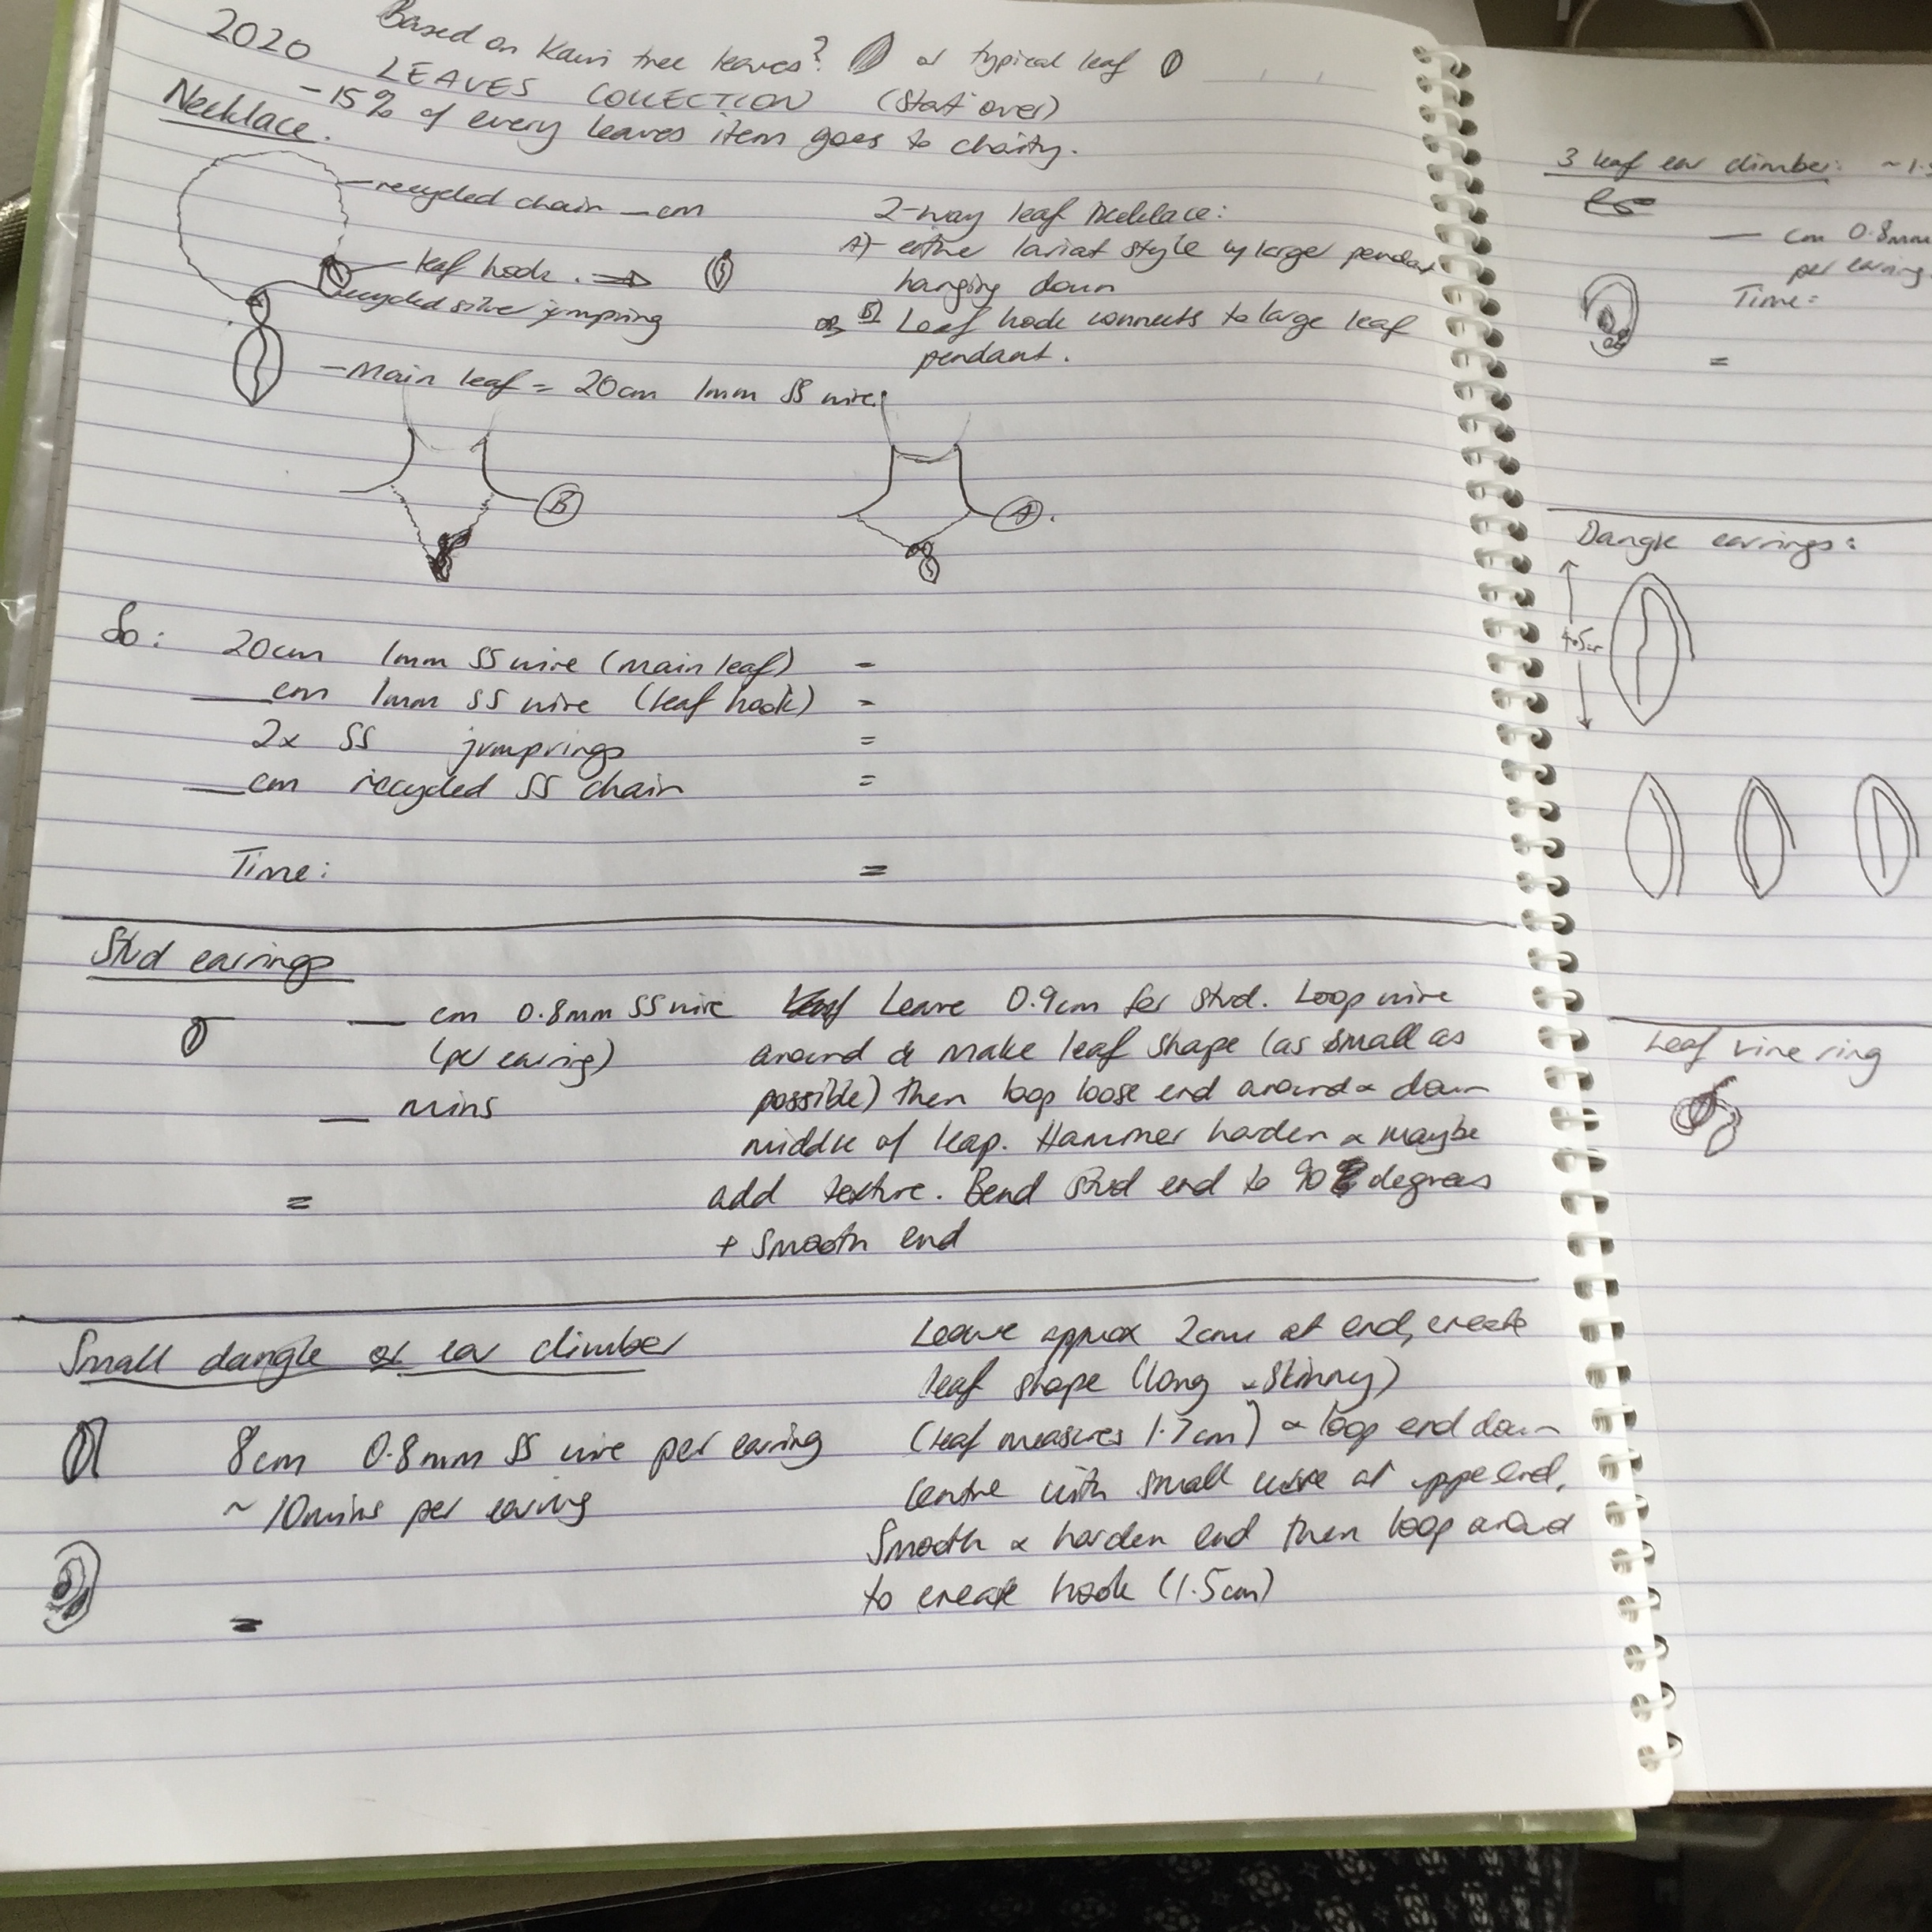 2020
Based on Kauri tree leaves? or typical leaf
LEAVES COLLECTION (Start over)
-15% of every leaves item goes to charity.
Necklace.
recycled chain __cm
leaf hook.
recycled silver jumpring
- Main leaf = 20cm 1mm SS wire
2-way leaf necklace:
A)- either lariat style w/ larger pendant
hanging down
OR B) Leaf hook connects to large leaf
pendant.
B
A.
So: 20cm 1mm SS wire (main leaf) =
__cm 1mm SS wire (leaf hook) =
2x SS jumprings =
__cm recycled SS chain =
Time: =
Stud earrings
__ cm 0.8mm SS wire
(per earing)
__ mins
=
Leave 0.9cm for stud. Loop wire
around & make leaf shape (as small as
possible) then loop loose end around & down
middle of leap. Hammer harden & maybe
add texture. Bend stud end to 90 degrees
+ smooth end
Small dangle or ear climber
8cm 0.8mm SS wire per earing
~10mins per earing
=
Leave approx 2cm at end, create
leaf shape (long & skinny)
(leaf measures 1.7cm) & loop end down
centre with small wire at end,
Smooth & harden end then loop around
to create hook (1.5cm)
3 leaf ear climber: ~1.
__ cm 0.8mm
per earing
Time:
=
Dangle earrings:
4.5cm
Leaf vine ring